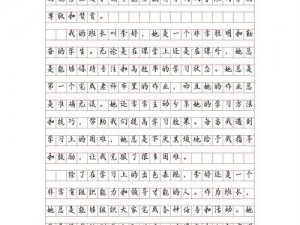 尊敬和赞赏。
我的班长叫李婷，她是一个非常聪明和勤
奋的学生。无论是在课堂上还是在课外，她总
是能够保持专注和高效率的学习状态。她总是
第一个完成老师布置的作业，而且她的作业总
是准确无误。她还常常主动分享她的学习方法
和技巧，帮助我们提高学习效率。每当我遇到
学习上的困难，她总是不厌其烦地给予我指导
和鼓励，让我克服了很多困难。
除了在学习上的出色表现，李婷还是一个
非常有组织能力和领导才能的人。作为班长，
她总是能够组织大家完成各种活动和活动。她